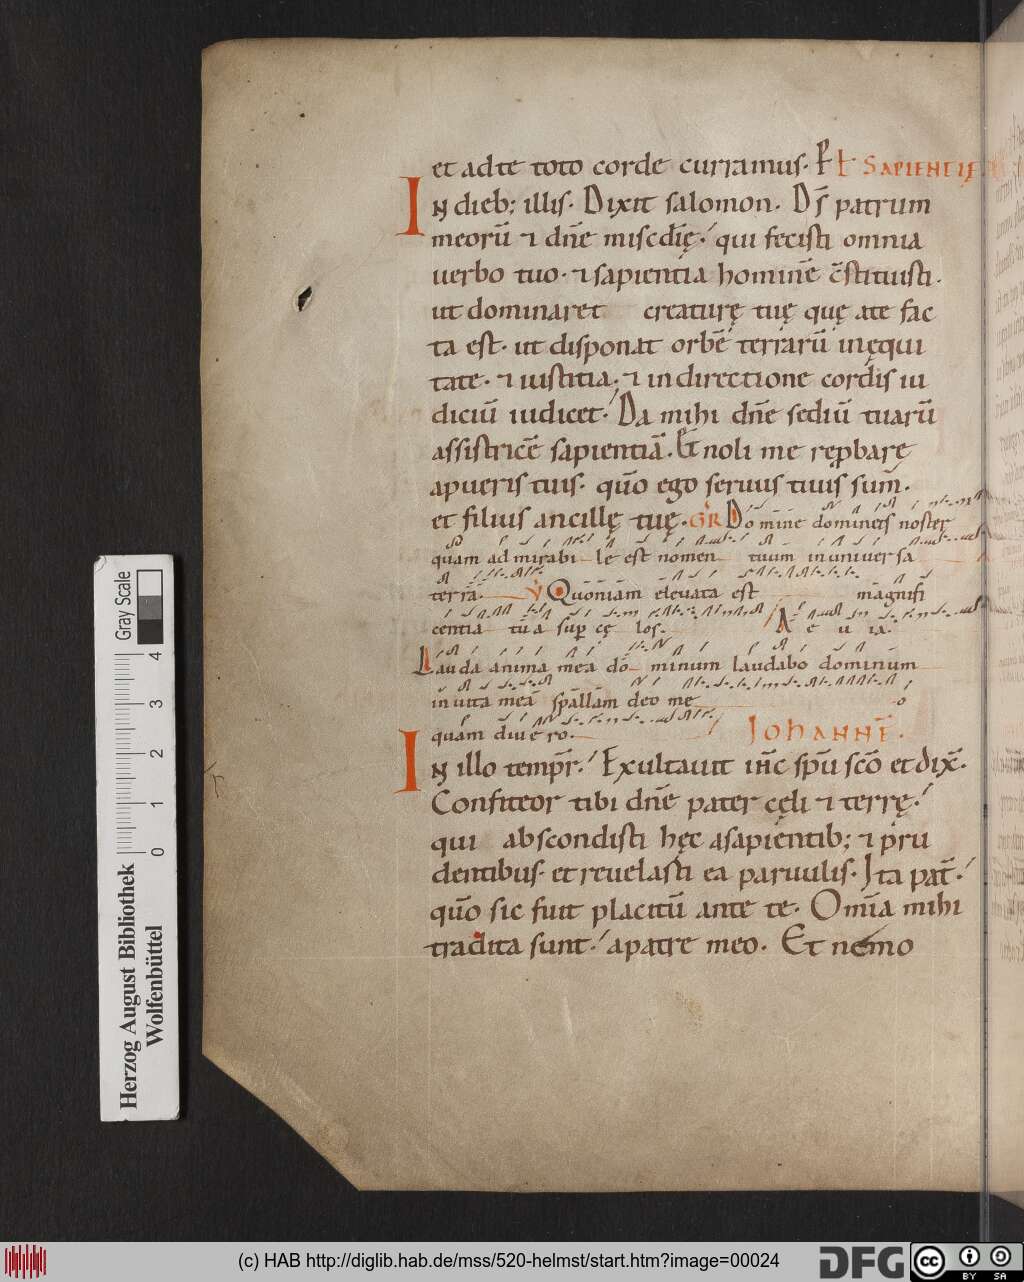 et ad te toto corde curramus. P̄ L̄ SAPIENTIĘ
IN dieb; illis. Dixit salomon. Ds̄ patrum
meorū ⁊ dn̄e misc̄dię. qui fecisti omnia
uerbo tuo. ⁊ sapientia hominē c̄stituisti.
ut dominaret creaturę tuę quę a te fac
ta est. ut disponat orbē terrarū in ęqui
tate. ⁊ iustitia. ⁊ in directione cordis iu
diciū iudicet. Da mihi dn̄e sediū tuarū
assistricē sapientiā. Et noli me rep̱bare
a pueris tuis. quō ego seruus tuus sum̄.
et filius ancillę tuę. GR̄ Domine dominus noster
quam admirabi le est nomen tuum in uniuersa
terra. V Quoniam eleuata est magnifi
centia tua sup̱ cę los. A e u ia.
Lauda anima mea do minum laudabo dominum
in uita mea psallam deo me o
quam diu ero. IOHANNĒ.
IN illo temp̄r. Exultauit ih̄c sp̄u sc̄o et dix̄.
Confiteor tibi dn̄e pater cęli ⁊ terrę.
qui abscondisti hęc a sapientib; ⁊ pru
dentibus. et reuelasti ea paruulis. Ita pat̄.
quō sic fuit placitū ante te. Om̄ia mihi
tradita sunt. a patre meo. Et nemo
Herzog August Bibliothek
Wolfenbüttel
Gray Scale
0 1 2 3 4
(c) HAB http://diglib.hab.de/mss/520-helmst/start.htm?image=00024
DFG
cc BY SA